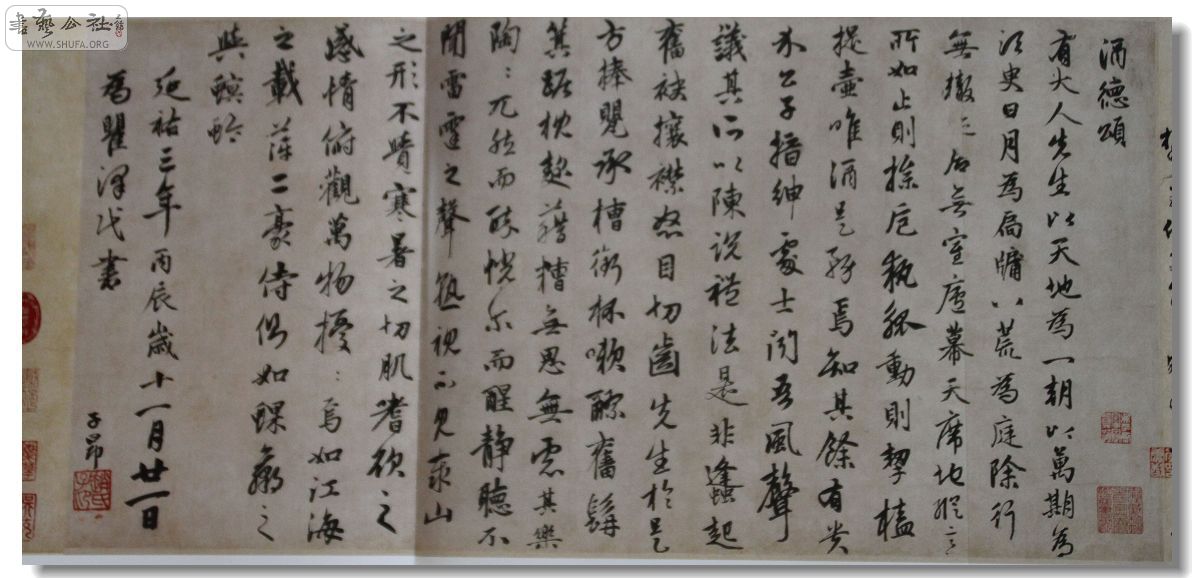 酒德頌
有大人先生以天地為一朝以萬期為
須臾日月為扃牖八荒為庭除行
無轍迹居無室廬幕天席地縱意
所如止則操卮執觚動則挈榼
提壺唯酒是務焉知其餘有貴
介公子搢紳處士聞吾風聲
議其所以陳說禮法是非蠭起
奮袂攘襟怒目切齒先生於是
方捧甖承槽銜杯漱醪奮髯
箕踞枕麴藉糟無思無慮其樂
陶〻兀然而醉恍爾而醒靜聽不
聞雷霆之聲熟視不見泰山
之形不覺寒暑之切肌嗜欲之
感情俯觀萬物擾〻焉如江海
之載萍二豪侍側如蜾蠃之
與螟蛉
延祐三年丙辰歲十一月廿一日
為瞿澤民書
子昂
趙氏子昂
書藝公社
WWW.SHUFA.ORG